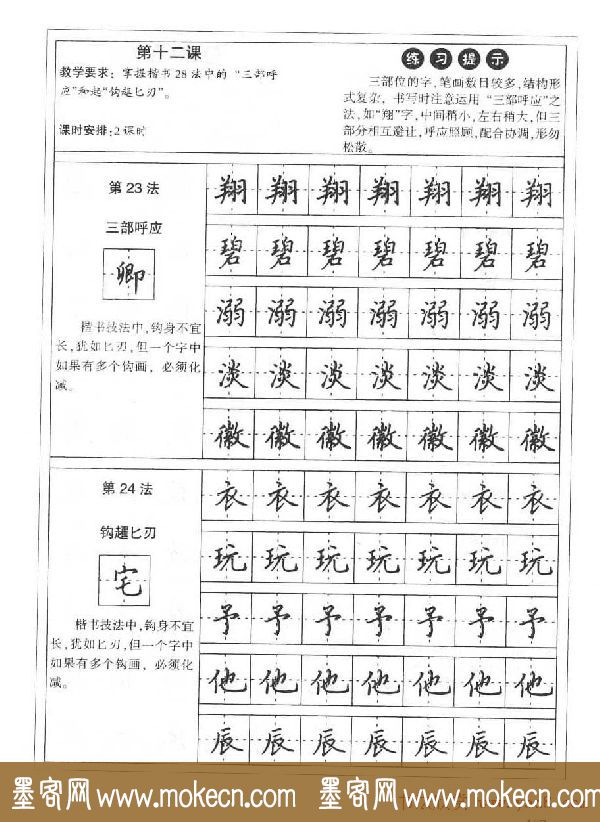 第十二课
教学要求：掌握楷书28法中的“三部呼
应”和起“钩趯匕刃”。
课时安排：2课时
练习提示
三部位的字，笔画数目较多，结构形
式复杂，书写时注意运用“三部呼应”之
法，如“翔”字，中间稍小，左右稍大，但三
部分相互避让，呼应照顾，配合协调，形勿
松散。
第23法
三部呼应
卿
楷书技法中，钩身不宜
长，犹如匕刃，但一个字中
如果有多个钩画，必须化
减。
翔翔翔翔翔翔翔
碧碧碧碧碧碧碧
溺溺溺溺溺溺溺
淡淡淡淡淡淡淡
徽徽徽徽徽徽徽
第24法
钩趯匕刃
宅
楷书技法中，钩身不宜
长，犹如匕刃，但一个字中
如果有多个钩画，必须化
减。
衣衣衣衣衣衣衣
玩玩玩玩玩玩玩
予予予予予予予
他他他他他他他
辰辰辰辰辰辰辰
墨客网 www.mokecn.com 墨客网 www.mokecn.com